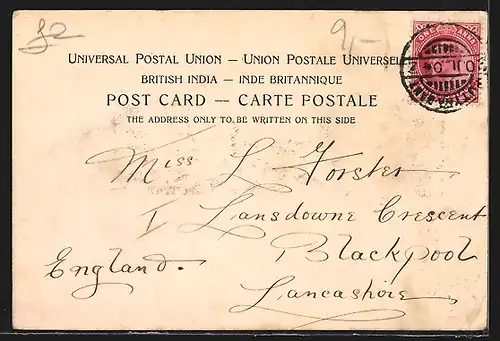 9,-
UNIVERSAL POSTAL UNION — UNION POSTALE UNIVERSEL
BRITISH INDIA — INDE BRITANNIQUE
POST CARD -- CARTE POSTALE
THE ADDRESS ONLY TO BE WRITTEN ON THIS SIDE
ONE ANNA
Miss L Forster
1 Lansdowne Crescent
Blackpool
England.
Lancashire